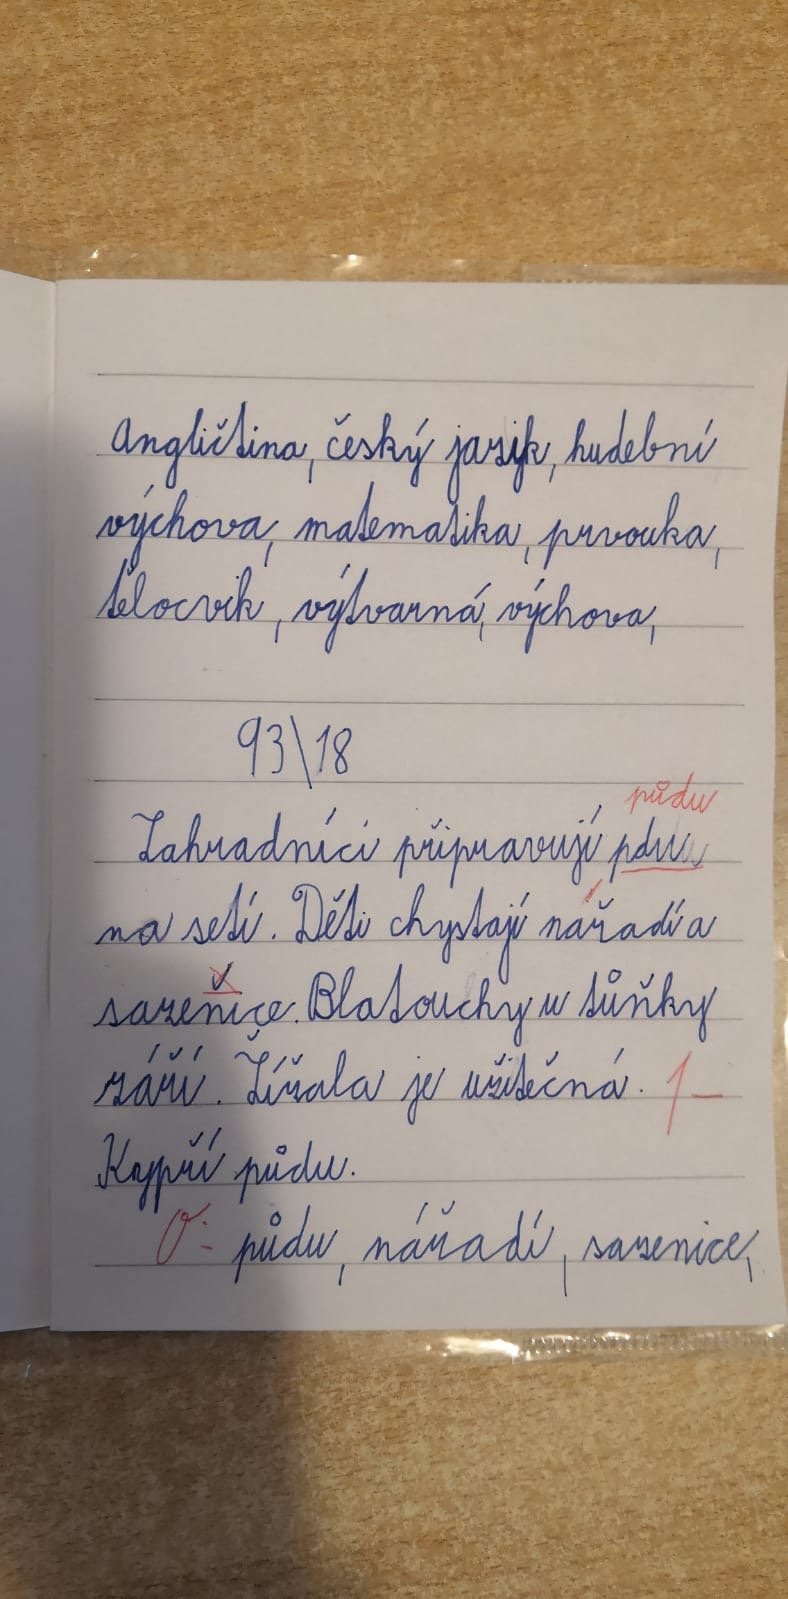 Angličtina, český jazyk, hudební
výchova, matematika, prvouka,
tělocvik, výtvarná, výchova,
93\18
půdu
Zahradníci připravují pdu
na setí. Děti chystají nářadí a
sazeňice. Blatouchy u tůňky
září. Žížala je užitečná. 1-
Kypří půdu.
O: půdu, nářadí, sazenice,